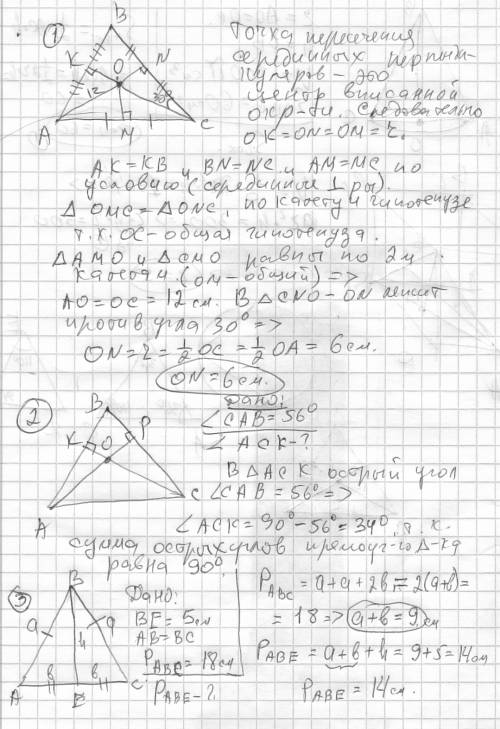 1
B
K
N
O
12
30°
A
M
C
Точка пересечения
серединных перпенди-
куляров - это
центр вписанной
окр-ти. Следовательно
OK=ON=OM=r.
AK=KB и BN=NC и AM=MC по
условию (серединные ⊥ры).
△OMC=△ONC, по катету и гипотенузе
т.к. OC-общая гипотенуза.
△AMO и △CMO равны по 2м
катетам. (OM-общий) =>
AO=OC=12см. В △CNO-ON лежит
против угла 30° =>
ON=r=½OC=½OA=6см.
ON=6см.
2
B
K
O
P
A
C
Дано:
∠CAB=56°
∠ACK-?
В △ACK острый угол
∠CAB=56° =>
∠ACK=90°-56°=34°, т.к.
сумма острых углов прямоуг-го △-ка
равна 90°.
3
B
a
h
a
b
b
A
E
C
Дано:
BE=5см
AB=BC
P_ABC=18см
P_ABE-?
P_ABC=a+a+2b=2(a+b)=
=18=>a+b=9см
P_ABE=a+b+h=9+5=14см
P_ABE=14см.